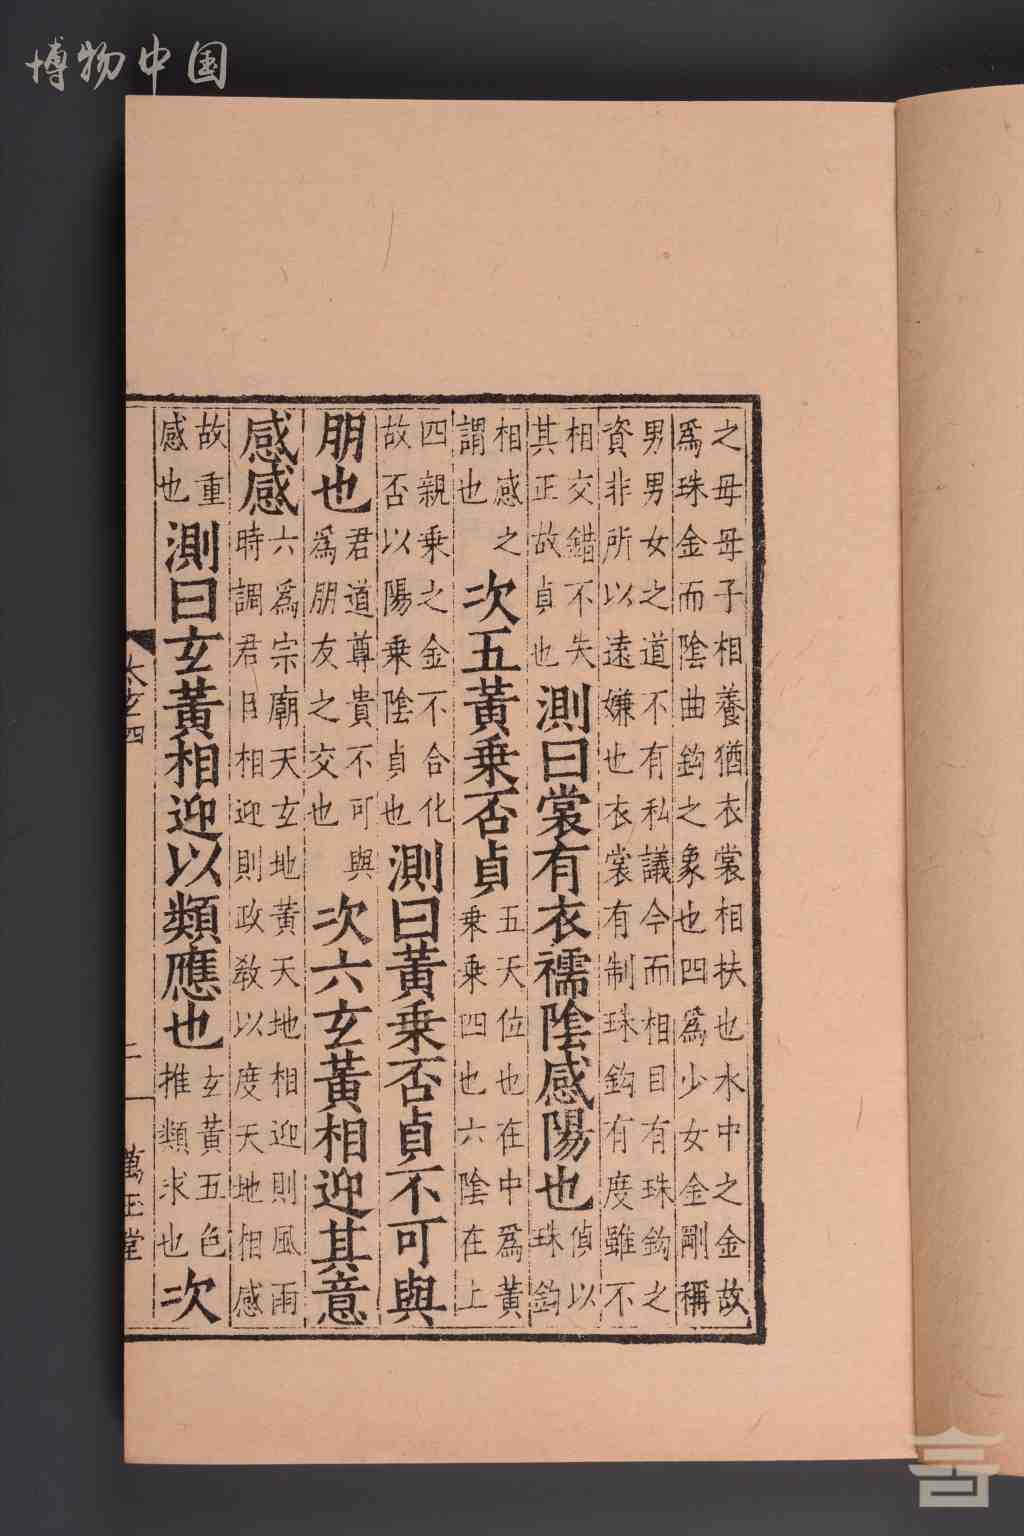 博物中国
之母母子相養猶衣裳相扶也水中之金故
爲珠金而陰曲鈎之象也四爲少女金剛稱
男男女之道不有私議今而相目有珠鈎之
資非所以遠嫌也衣裳有制珠鈎有度雖不
相交錯不失
其正故貞也
測曰裳有衣襦陰感陽也
偵以
珠鈎
相感之
謂也
次五黃乗否貞
五天位也在中爲黃
乗乗四也六陰在上
四親乗之金不合化
故否以陽乗陰貞也
測曰黃乗否貞不可與
朋也
君道尊貴不可與
爲朋友之交也
次六玄黃相迎其意
感感
六爲宗廟天玄地黃天地相迎則風雨
時調君目相迎則政教以度天地相感
故重
感也
測曰玄黃相迎以類應也
玄黃五色
推類求也
次
太玄四
二
萬玉堂